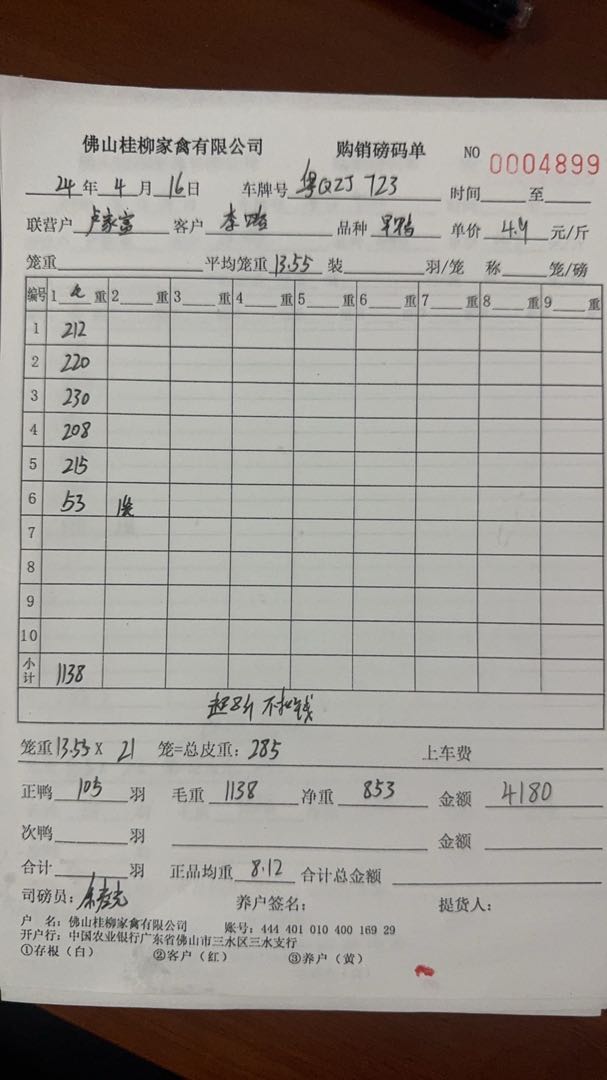 佛山桂柳家禽有限公司 购销磅码单 NO 0004899
24年4月16日 车牌号 粤QZJ 723 时间 至
联营户 卢家富 客户 李 品种 单价 4.9 元/斤
笼重 平均笼重 13.55 装 羽/笼 称 笼/磅
编号 1 4 重 2 重 3 重 4 重 5 重 6 重 7 重 8 重 9 重
1 212
2 220
3 230
4 208
5 215
6 53 1笼
7
8
9
10
小计 1138
超8斤 不扣钱
笼重 13.55 X 21 笼=总皮重: 285 上车费
正鸭 105 羽 毛重 1138 净重 853 金额 4180
次鸭 羽 金额
合计 羽 正品均重 8.12 合计总金额
司磅员: 养户签名: 提货人:
户 名: 佛山桂柳家禽有限公司 账号: 444 401 010 400 169 29
开户行: 中国农业银行广东省佛山市三水区三水支行
①存根(白) ②客户(红) ③养户(黄)